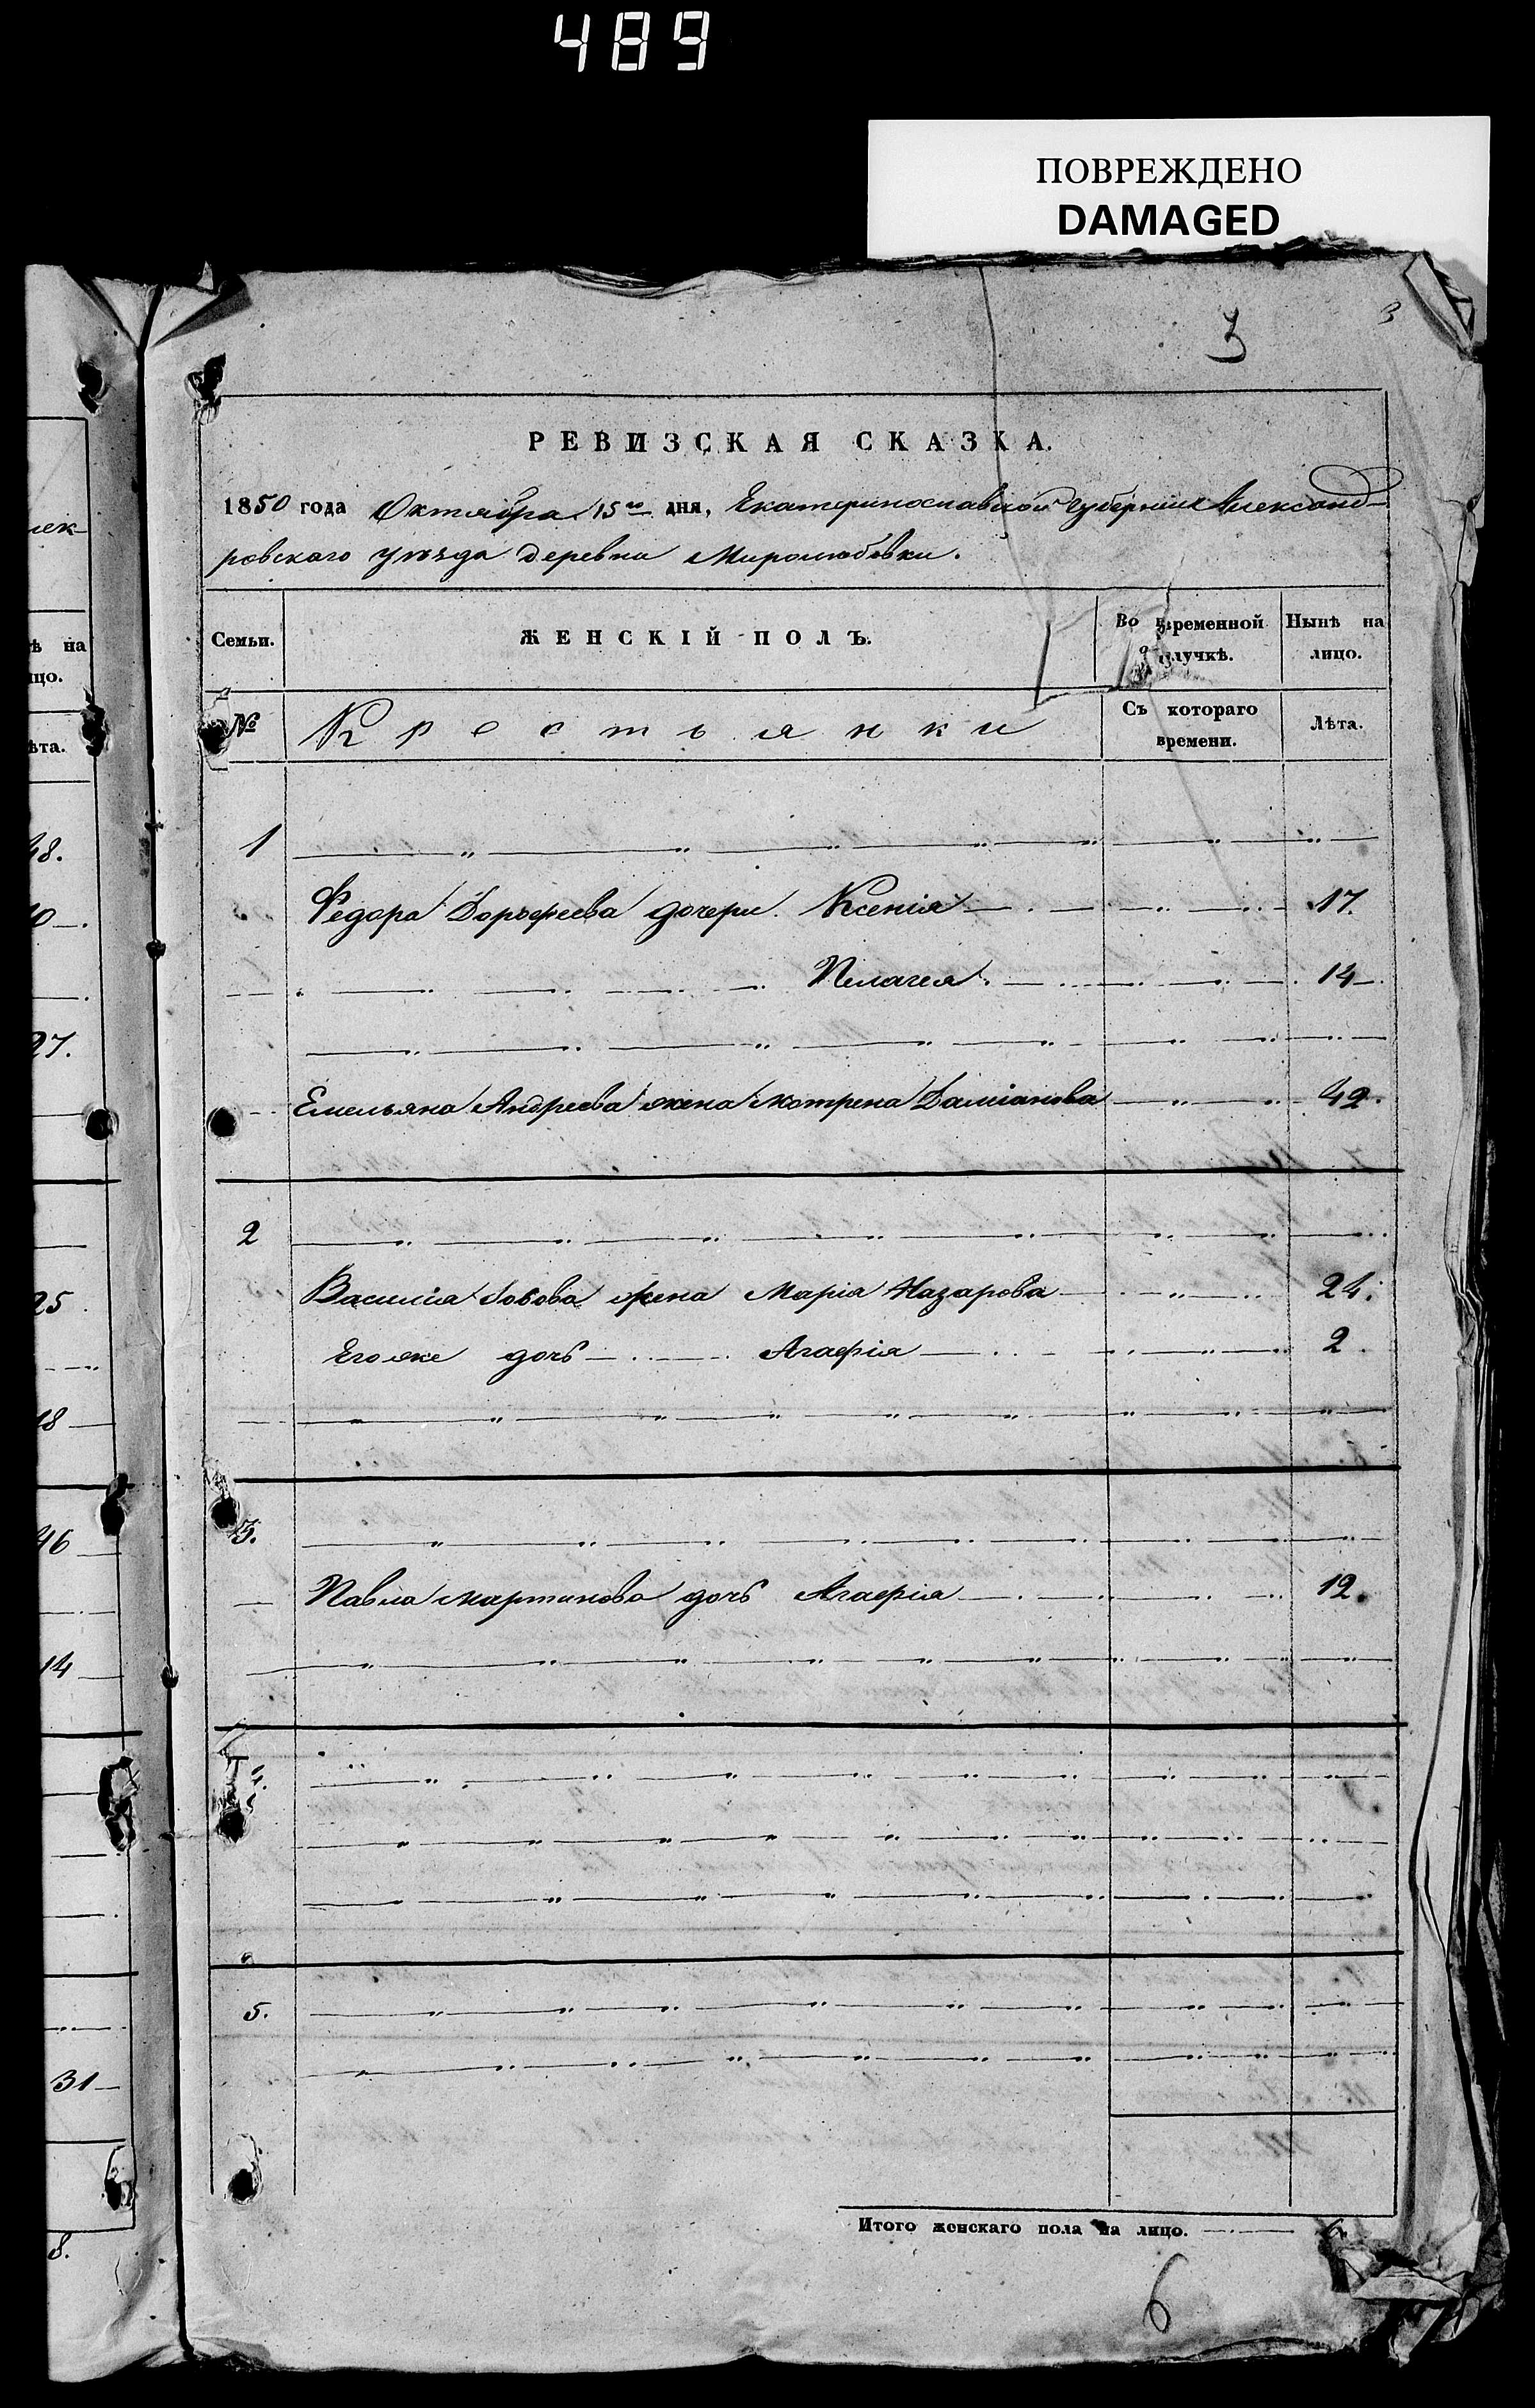 489
ПОВРЕЖДЕНО
DAMAGED
3
3
РЕВИЗСКАЯ СКАЗКА.
1850 года Октября 15го дня, Екатеринославской Губернии Александ-
ровскаго уѣзда деревна Миролюбовки.
Семьи. ЖЕНСКІЙ ПОЛЪ. Во временной отлучкѣ. Нынѣ на лицо.
№ Крестьянки Съ котораго времени. Лѣта.
1
Федора Дорофеева дочери Ксенія 17.
Пелагея 14
Емельяна Андреева жена Мотрена Даміанова 42.
2
Василія Бовова жена Марія Назарова 24.
Его же дочь Агафія 2.
3.
Павла Мартинова дочь Агафія 12.
4.
5.
Итого женскаго пола на лицо. 6.
6
лек-
ѣ на
цо.
ѣта.
48.
10
27.
25
18
46
14
31
8.